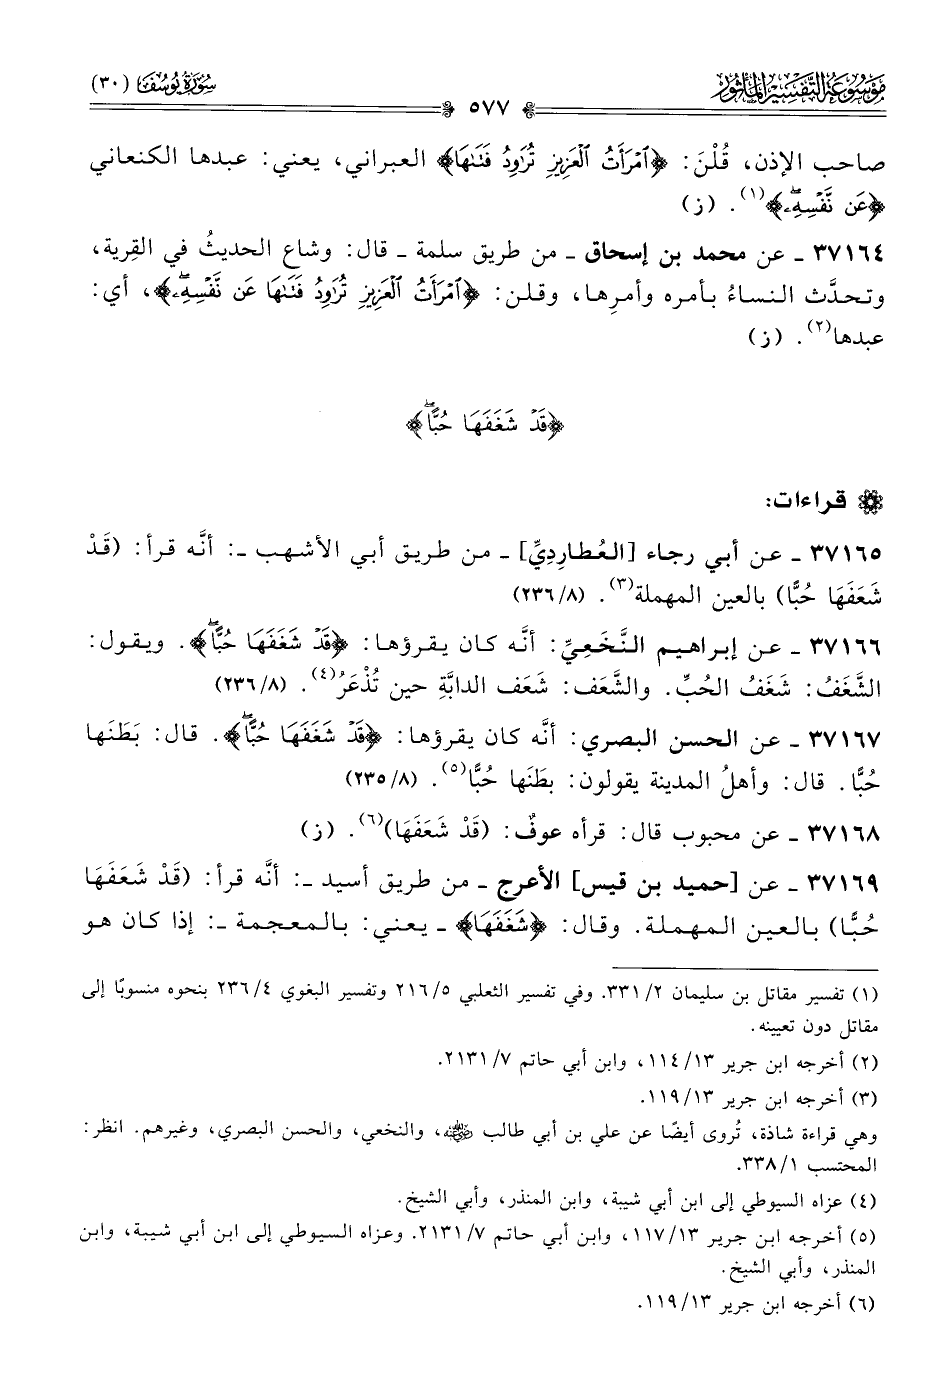 مَوْسُوعَة التَّفْسِيرِ المَأْثُور
٥٧٧
سُورَةُ يُوسُف (٣٠)
صاحب الإذن، قُلْنَ: ﴿ٱمْرَأَتُ ٱلْعَزِيزِ تُرَٰوِدُ فَتَىٰهَا﴾ العبراني، يعني: عبدها الكنعاني
﴿عَن نَّفْسِهِۦۖ﴾(١). (ز)
٣٧١٦٤ ـ عن محمد بن إسحاق ـ من طريق سلمة ـ قال: وشاع الحديثُ في القرية،
وتحدَّث النساءُ بأمره وأمرِها، وقلن: ﴿ٱمْرَأَتُ ٱلْعَزِيزِ تُرَٰوِدُ فَتَىٰهَا عَن نَّفْسِهِۦۖ﴾، أي:
عبدها(٢). (ز)
﴿قَدْ شَغَفَهَا حُبًّاۖ﴾
قراءات:
٣٧١٦٥ ـ عن أبي رجاء [العُطارِدِيِّ] ـ من طريق أبي الأشهب ـ: أنَّه قرأ: (قَدْ
شَعَفَهَا حُبًّا) بالعين المهملة(٣). (٢٣٦/٨)
٣٧١٦٦ ـ عن إبراهيم النَّخَعِيِّ: أنَّه كان يقرؤها: ﴿قَدْ شَغَفَهَا حُبًّاۖ﴾. ويقول:
الشَّغَفُ: شَغَفُ الحُبِّ. والشَّعَف: شَعَف الدابَّةِ حين تُذْعَرُ(٤). (٢٣٦/٨)
٣٧١٦٧ ـ عن الحسن البصري: أنَّه كان يقرؤها: ﴿قَدْ شَغَفَهَا حُبًّاۖ﴾. قال: بَطَنها
حُبًّا. قال: وأهلُ المدينة يقولون: بطَنَها حُبًّا(٥). (٢٣٥/٨)
٣٧١٦٨ ـ عن محبوب قال: قرأه عوفٌ: (قَدْ شَعَفَهَا)(٦). (ز)
٣٧١٦٩ ـ عن [حميد بن قيس] الأعرج ـ من طريق أسيد ـ: أنَّه قرأ: (قَدْ شَعَفَهَا
حُبًّا) بالعين المهملة. وقال: ﴿شَغَفَهَا﴾ ـ يعني: بالمعجمة ـ: إذا كان هو
(١) تفسير مقاتل بن سليمان ٣٣١/٢. وفي تفسير الثعلبي ٢١٦/٥ وتفسير البغوي ٢٣٦/٤ بنحوه منسوبًا إلى
مقاتل دون تعيينه.
(٢) أخرجه ابن جرير ١١٤/١٣، وابن أبي حاتم ٢١٣١/٧.
(٣) أخرجه ابن جرير ١١٩/١٣.
وهي قراءة شاذة، تُروى أيضًا عن علي بن أبي طالب رضي الله عنه، والنخعي، والحسن البصري، وغيرهم. انظر:
المحتسب ٣٣٨/١.
(٤) عزاه السيوطي إلى ابن أبي شيبة، وابن المنذر، وأبي الشيخ.
(٥) أخرجه ابن جرير ١١٧/١٣، وابن أبي حاتم ٢١٣١/٧. وعزاه السيوطي إلى ابن أبي شيبة، وابن
المنذر، وأبي الشيخ.
(٦) أخرجه ابن جرير ١١٩/١٣.